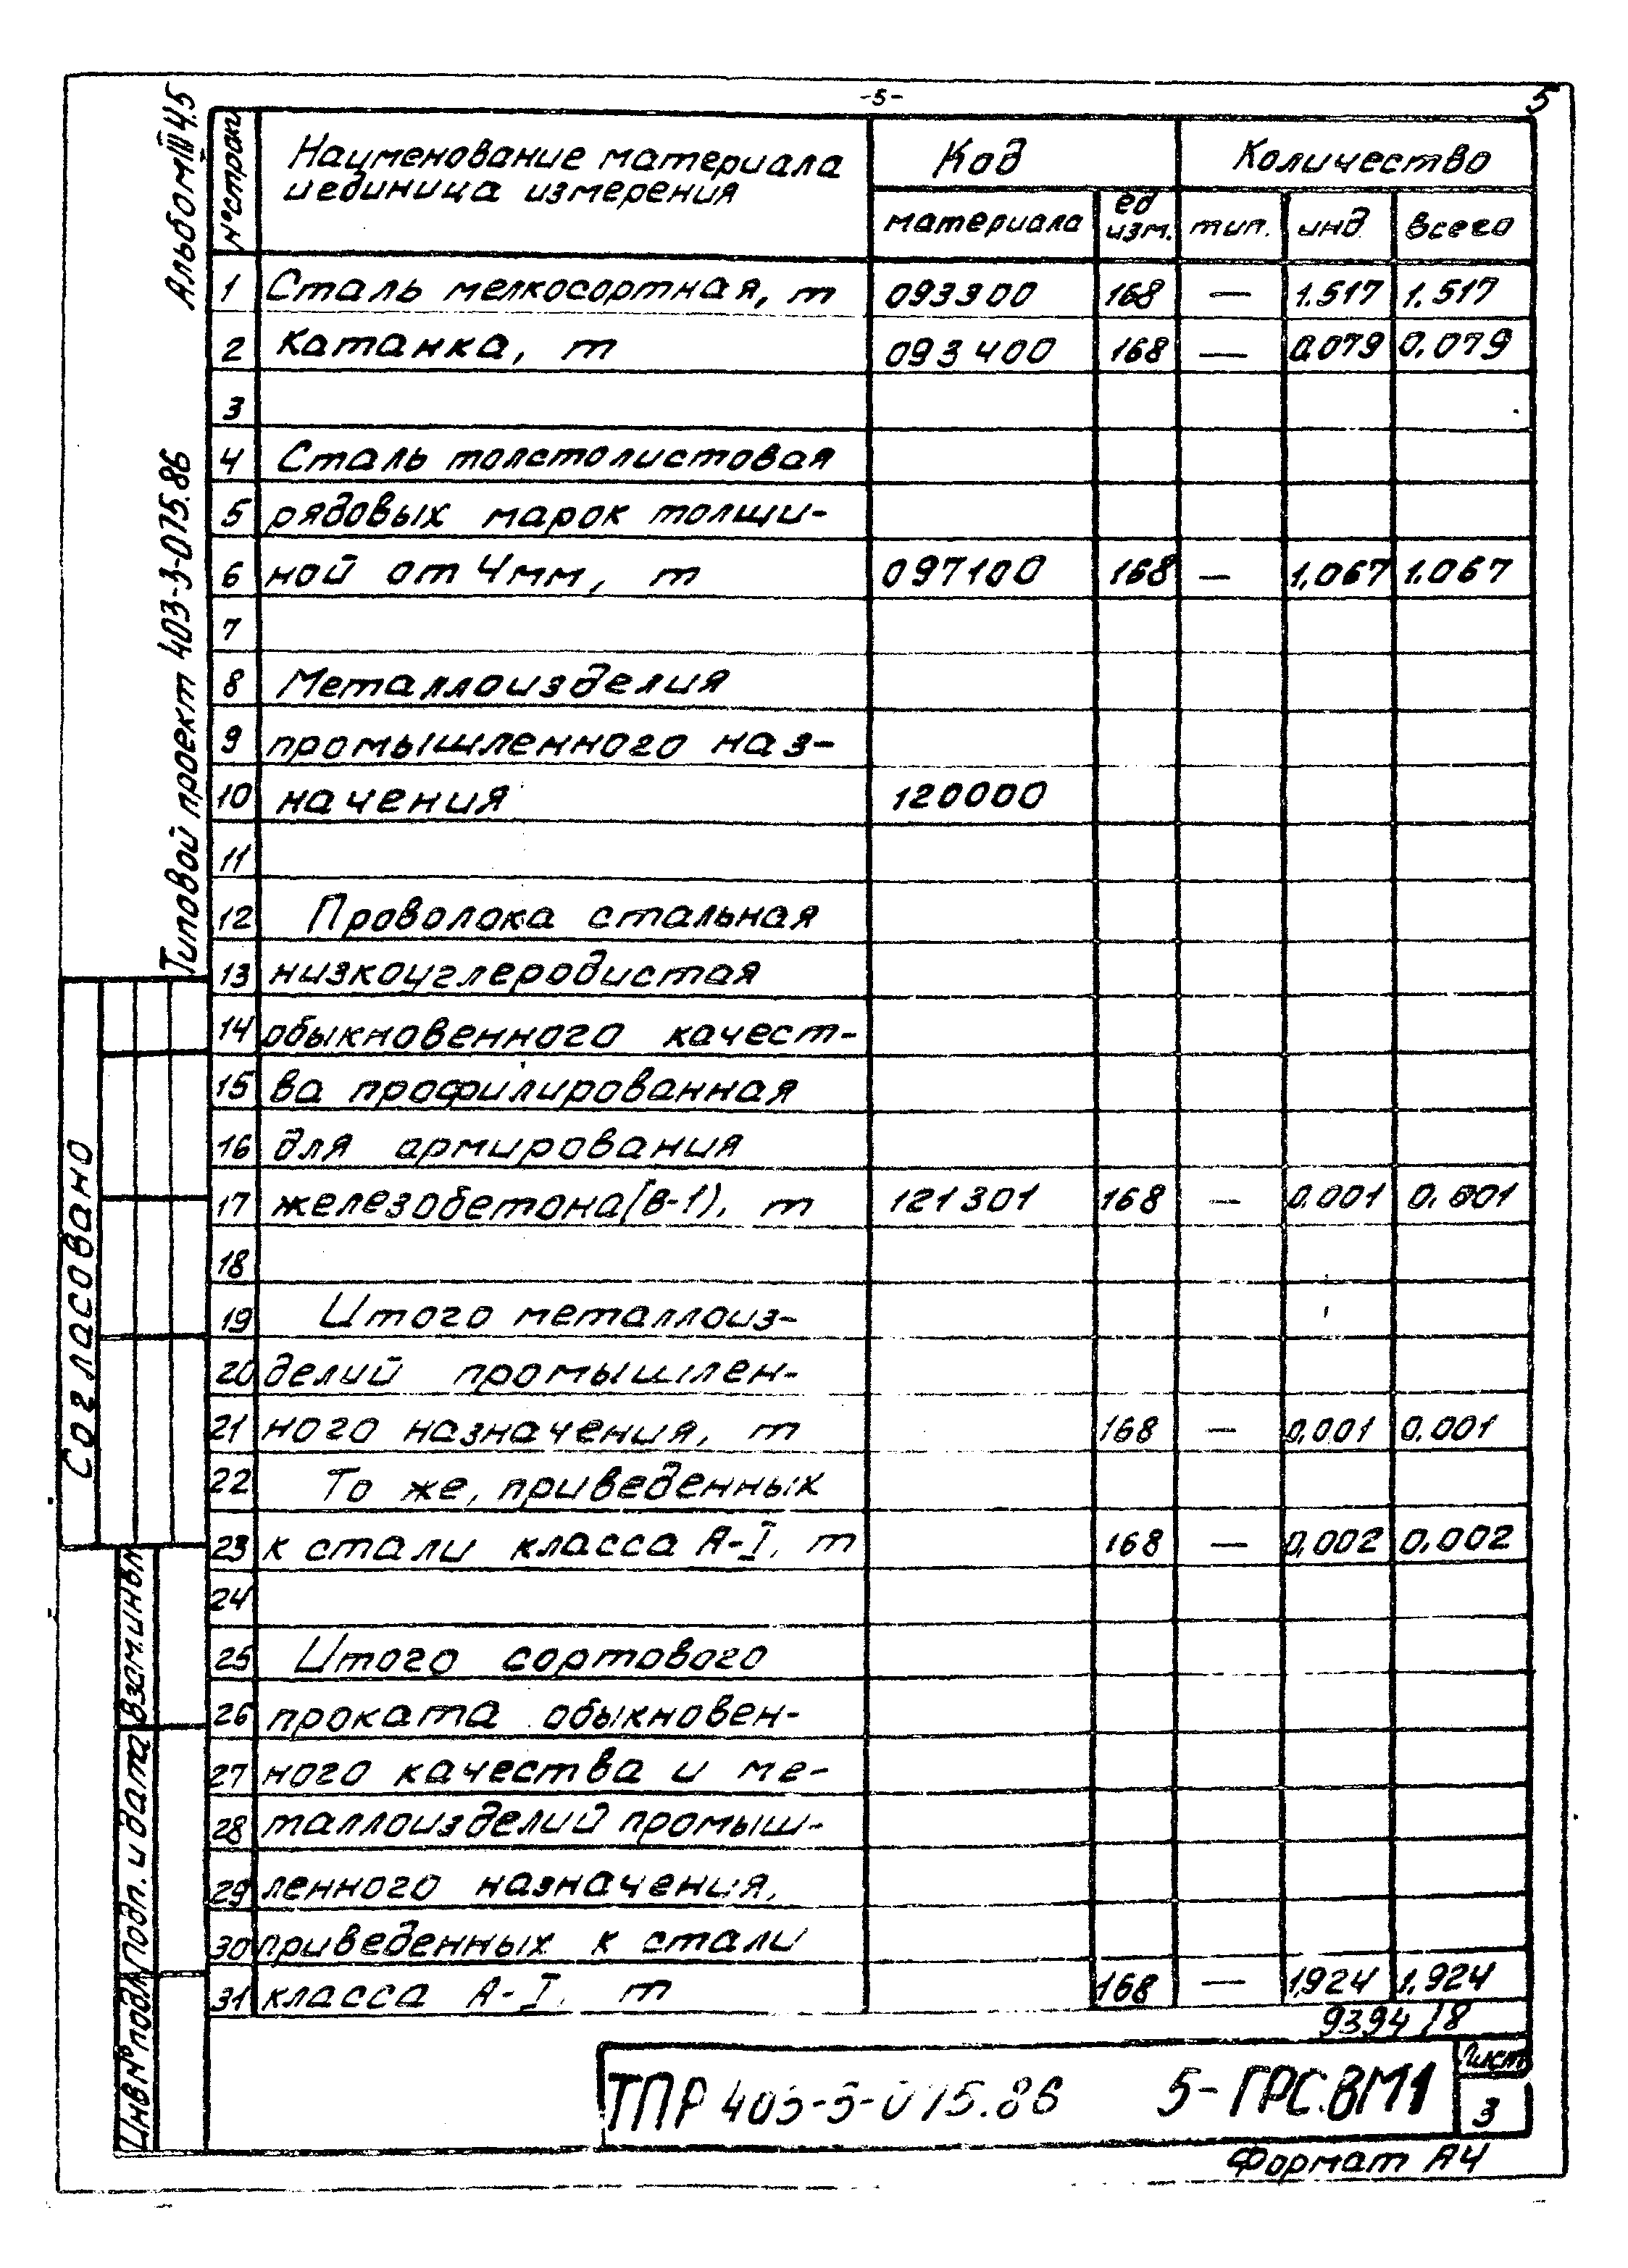 -5-
5
Альбом III ч.5
Типовой проект 403-3-075.86
N° строки
Наименование материала
и единица измерения
Код
Количество
материала
ед
изм.
тип.
инд
всего
1 Сталь мелкосортная, т 093300 168 — 1.517 1.517
2 Катанка, т 093400 168 — 0.079 0.079
3
4 Сталь толстолистовая
5 рядовых марок толщи-
6 ной от 4мм, т 097100 168 — 1,067 1.067
7
8 Металлоизделия
9 промышленного наз-
10 начения 120000
11
12 Проволока стальная
13 низкоуглеродистая
14 обыкновенного качест-
15 ва профилированная
16 для армирования
17 железобетона (в-1), т 121301 168 — 0.001 0.001
18
19 Итого металлоиз-
20 делий промышлен-
21 ного назначения, т 168 — 0,001 0.001
22 То же, приведенных
23 к стали класса А-I, т 168 — 0,002 0,002
24
25 Итого сортового
26 проката обыкновен-
27 ного качества и ме-
28 таллоизделий промыш-
29 ленного назначения,
30 приведенных к стали
31 класса А-I, т 168 — 1,924 1,924
9394/8
Согласовано
Взам.инв.N
Подп. и дата
Инв N°подл
ТПР 403-3-075.86
5-ГРС.ВМ1
Лист
3
Формат А4